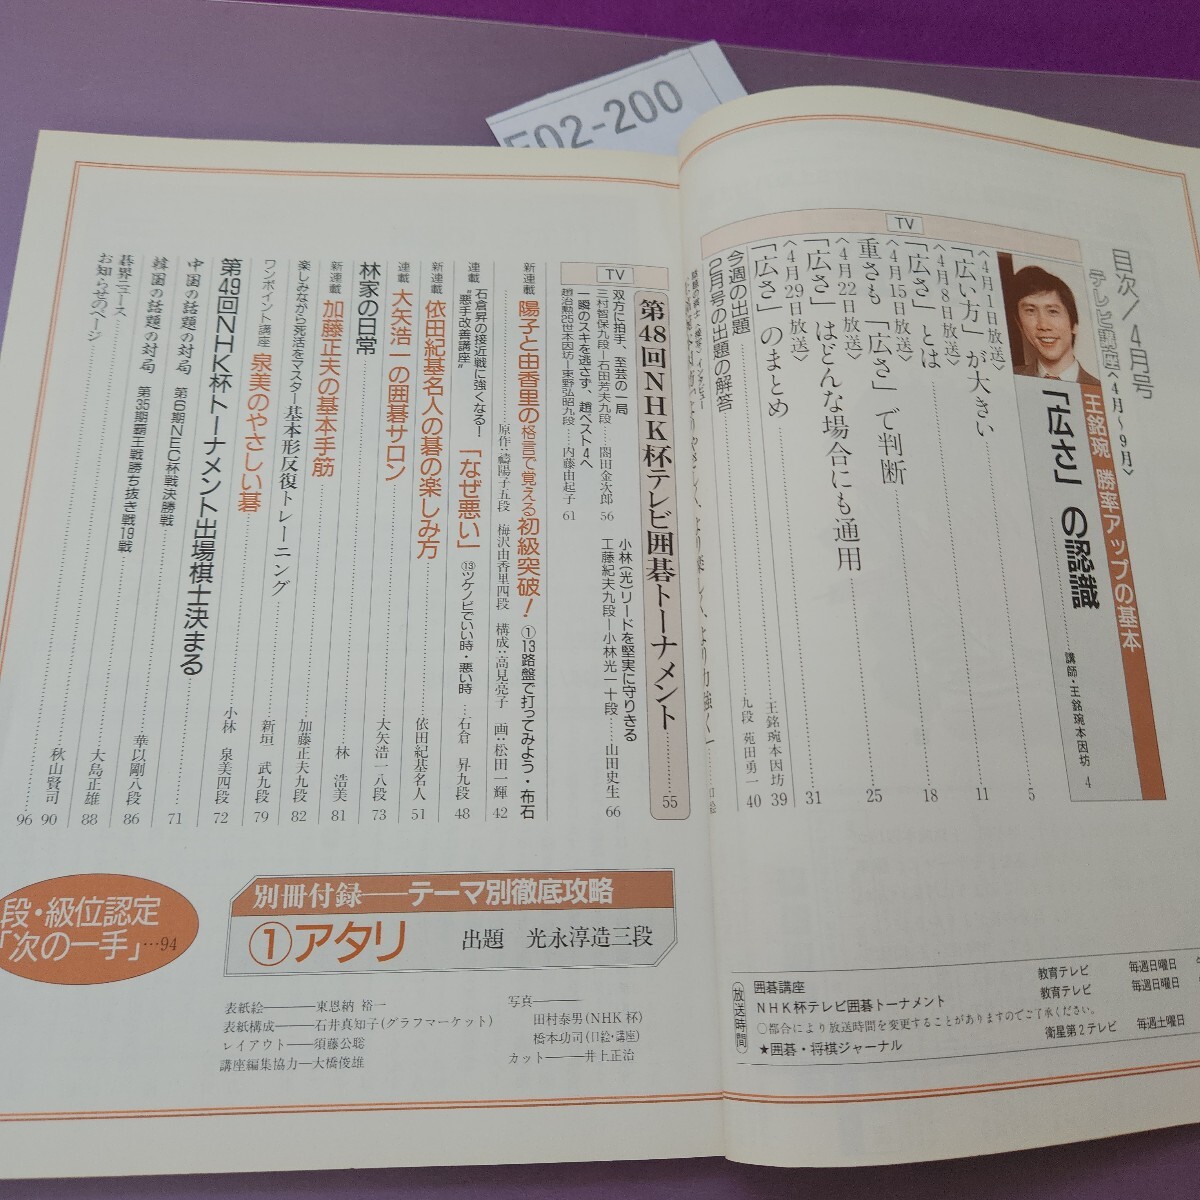 F02-200
目次/4月号
テレビ講座〈4月～9月〉
王銘琬 勝率アップの基本
「広さ」の認識
講師・王銘琬本因坊 4
TV
〈4月1日放送〉
「広い方」が大きい 5
〈4月8日放送〉
「広さ」とは 11
〈4月15日放送〉
重さも「広さ」で判断 18
〈4月22日放送〉
「広さ」はどんな場合にも通用 25
〈4月29日放送〉
「広さ」のまとめ 31
今週の出題 王銘琬本因坊 39
の月号の出題の解答 九段 苑田勇一 40
囲碁講座 教育テレビ 毎週日曜日
NHK杯テレビ囲碁トーナメント 教育テレビ 毎週日曜日
○都合により放送時間を変更することがありますのでご了承ください。
★囲碁・将棋ジャーナル 衛星第2テレビ 毎週土曜日
(放送時間)
第48回NHK杯テレビ囲碁トーナメント 55
TV
小林(光)リードを堅実に守りきる
工藤紀夫九段―小林光一十段 山田史生 66
双方に拍手、至芸の一局
三村智保九段―石田芳夫九段 閤田金次郎 56
一瞬のスキを逃さず、趙ベスト4へ
趙治勲25世本因坊―東野弘昭九段 内藤由起子 61
新連載 陽子と由香里の格言で覚える初級突破! ①13路盤で打ってみよう・布石
原作:穂陽子五段 梅沢由香里四段 構成:高見亮子 画:松田一輝 42
連載 石倉昇の接近戦に強くなる!"悪手改善講座" 「なぜ悪い」 ⑬ツケノビでいい時・悪い時 石倉 昇九段 48
新連載 依田紀基名人の碁の楽しみ方 依田紀基名人 51
連載 大矢浩一の囲碁サロン 大矢浩一八段 73
林家の日常 林 浩美 81
新連載 加藤正夫の基本手筋 加藤正夫九段 82
楽しみながら死活をマスター基本形反復トレーニング 新垣 武九段 79
ワンポイント講座 泉美のやさしい碁 小林 泉美四段 72
第49回NHK杯トーナメント出場棋士決まる 71
中国の話題の対局 第6期NEC杯戦決勝戦 華以剛八段 86
韓国の話題の対局 第35期覇王戦勝ち抜き戦19戦 大島正雄 88
碁界ニュース 秋山賢司 90
お知らせのページ 96
段・級位認定
「次の一手」…94
別冊付録――テーマ別徹底攻略
①アタリ 出題 光永淳造三段
表紙絵―――東恩納 裕一
表紙構成――石井真知子(グラフマーケット)
レイアウト――須藤公聡
講座編集協力―大橋俊雄
写真――
田村泰男(NHK杯)
橋本功司(口絵・講座)
カット――井上正治